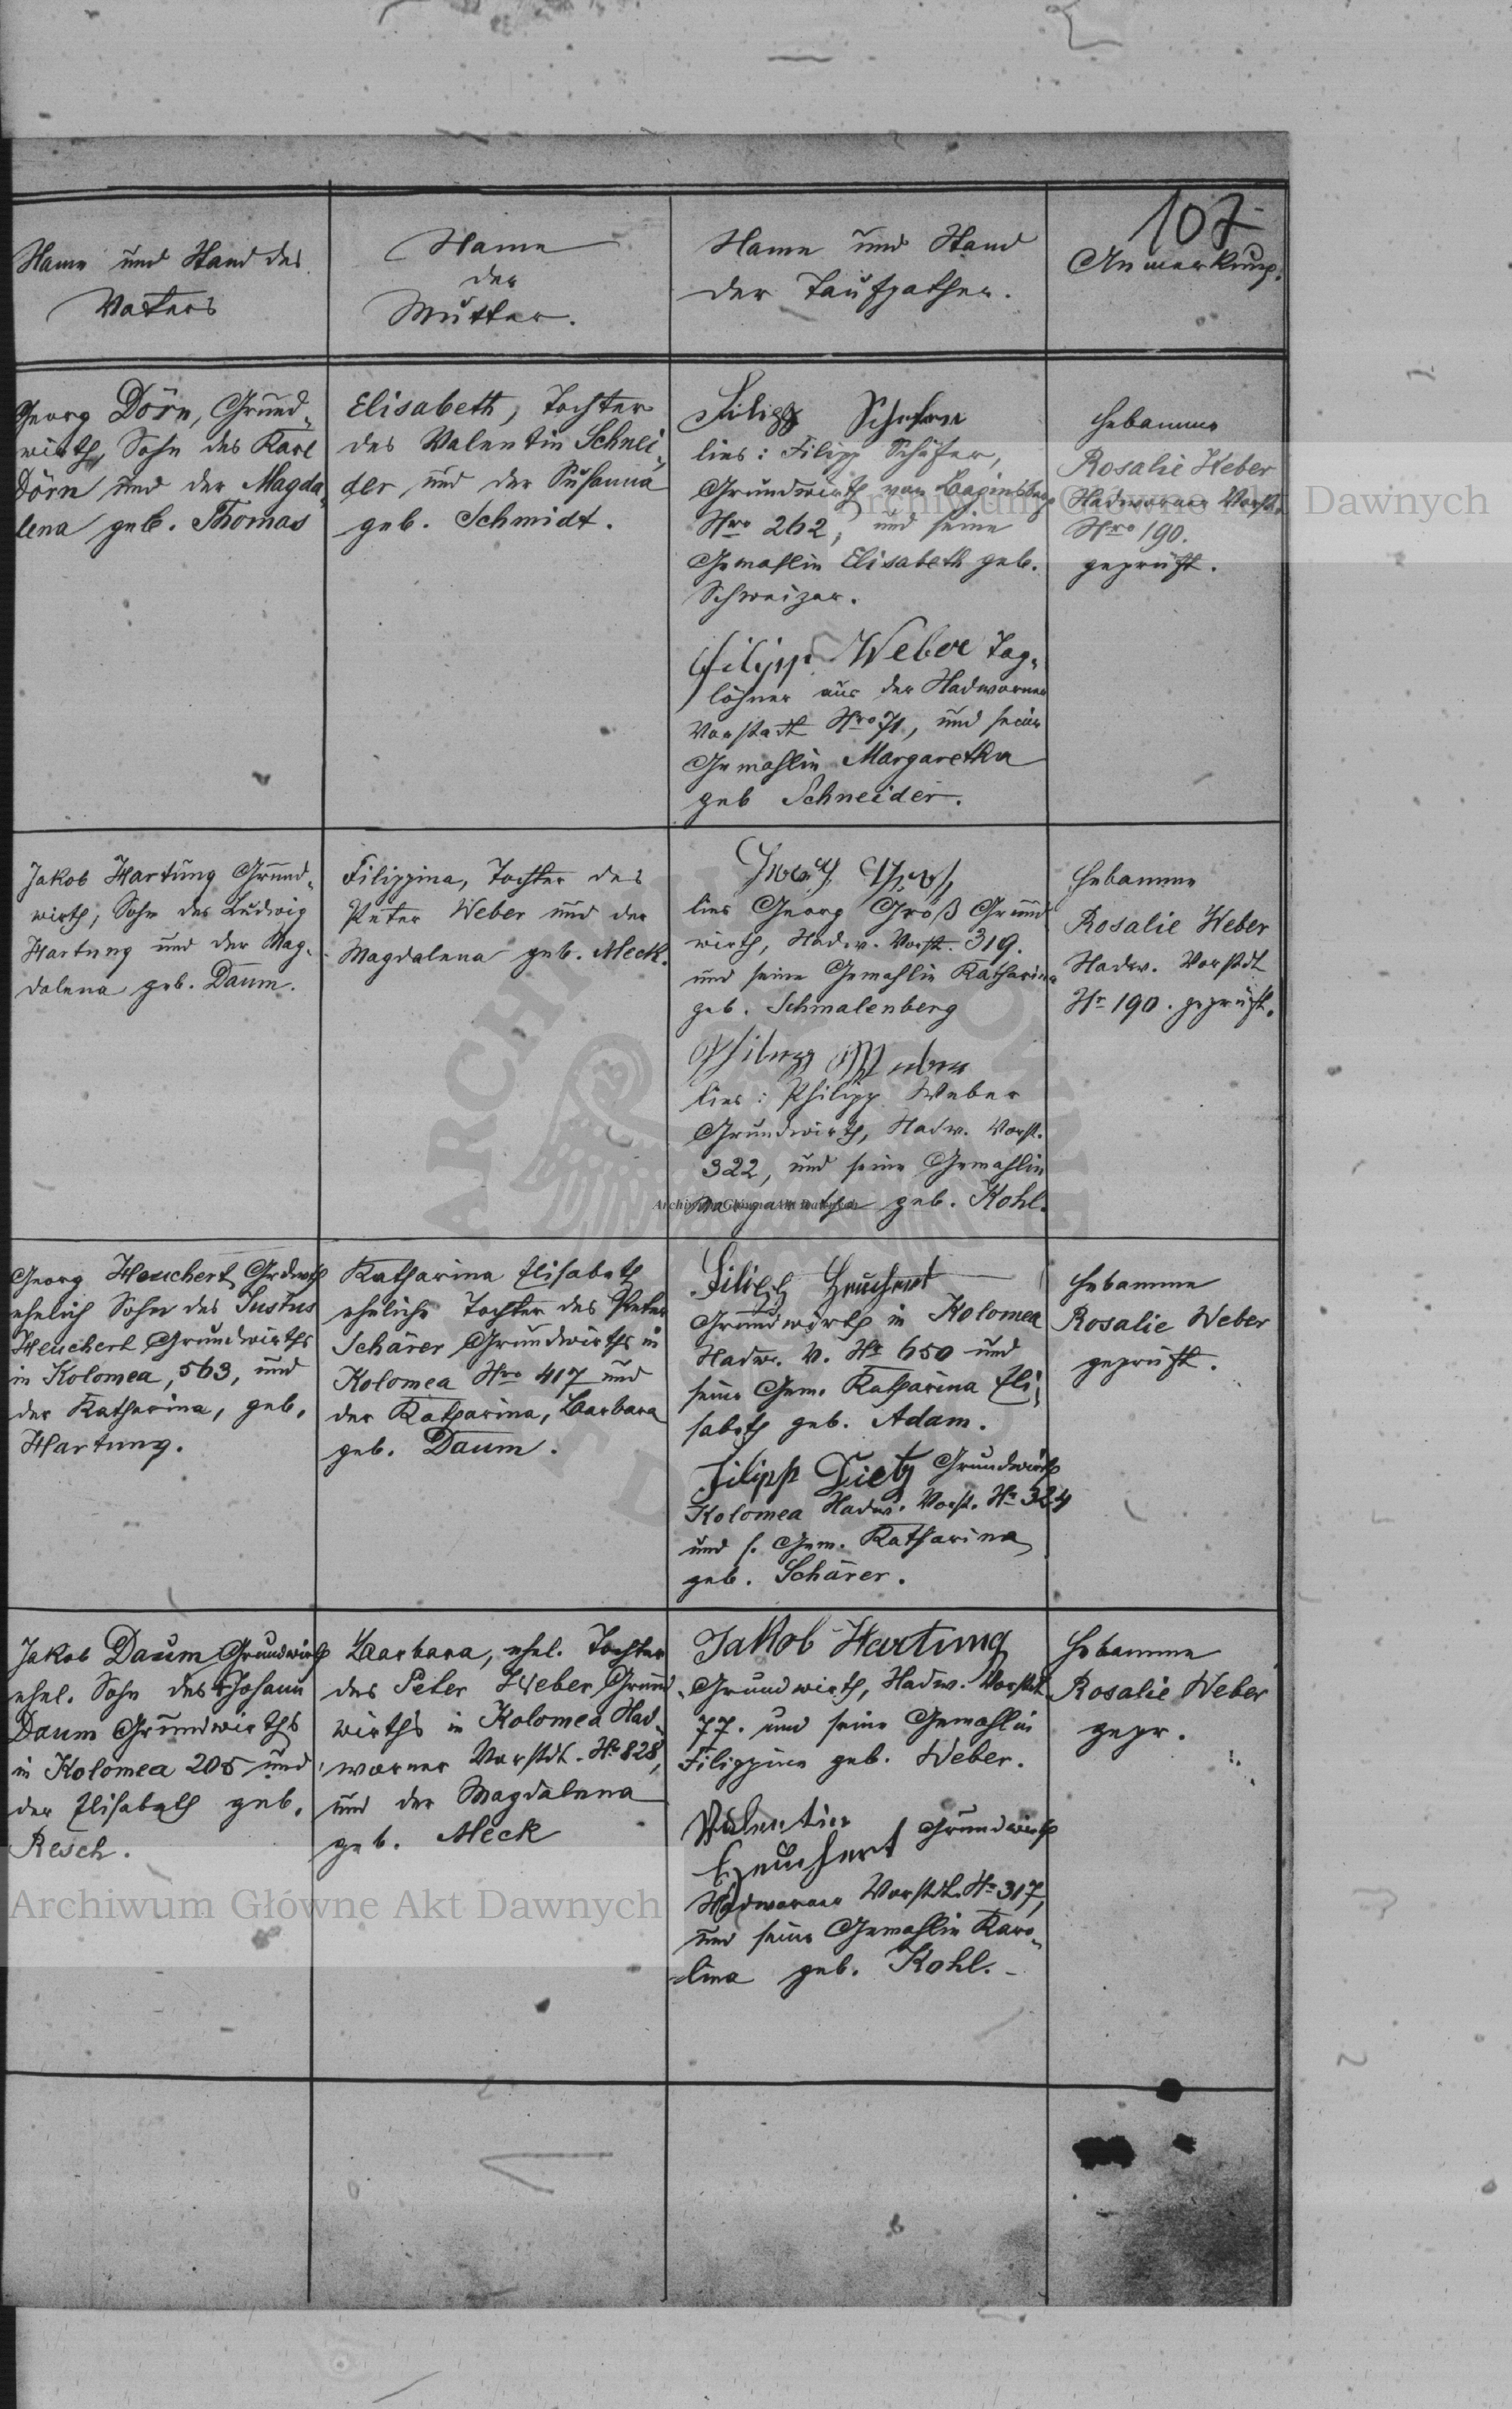 107
Name und Stand des
Vaters
Name
der
Mutter.
Name und Stand
der Taufpathen.
Anmerkung.
Georg Dörn, Grund-
wirth, Sohn des Karl
Dörn und der Magda-
lena geb. Thomas
Elisabeth, Tochter
des Valentin Schnei-
der, und der Susanna
geb. Schmidt.
Filipp Schefer
lies: Filipp Schäfer,
Grundwirth von Baginsberg
Nro 262, und seine
Gemahlin Elisabeth geb.
Schweizer.
Filipp Weber Tag-
löhner aus der Nadworner
Vorstadt Nro 71, und seine
Gemahlin Margaretha
geb Schneider.
Hebamme
Rosalie Weber
Nadworner Vorst.
Nro 190.
geprüft.
Jakob Hartung Grund-
wirth, Sohn des Ludwig
Hartung und der Mag-
dalena geb. Daum.
Filippina, Tochter des
Peter Weber und der
Magdalena geb. Meck.
lies Georg Groß Grund
wirth, Nadw. Vorst. 319.
und seine Gemahlin Katharina
geb. Schmalenberg
Philipp Weber
lies: Philipp Weber
Grundwirth, Nadw. Vorst.
322, und seine Gemahlin
Margaretha geb. Kohl.
Hebamme
Rosalie Weber
Nadw. Vorstdt
Nr 190. geprüft.
Georg Heuchert Grdwth
ehelich Sohn des Justus
Heuchert Grundwirths
in Kolomea, 563, und
der Katharina, geb.
Hartung.
Katharina Elisabeth
eheliche Tochter des Peter
Schärer Grundwirths in
Kolomea Nro 417 und
der Katharina, Barbara
geb. Daum.
Filipp Heuchert
Grundwirth in Kolomea
Nadw. V. Nr 650 und
seine Gem. Katharina Eli-
sabeth geb. Adam.
Filipp Dietz Grundwirth
Kolomea Nadw. Vorst. Nr 324
und s. Gem. Katharina
geb. Schärer.
Hebamme
Rosalie Weber
geprüft.
Jakob Daum Grundwirth
ehel. Sohn des Johann
Daum Grundwirths
in Kolomea 205 und
der Elisabeth geb.
Resch.
Barbara, ehel. Tochter
des Peter Weber Grund-
wirths in Kolomea Nad-
worner Vorstdt. Nr 828,
und der Magdalena
geb. Meck
Jakob Hartung
Grundwirth, Nadw. Vorstdt
77. und seine Gemahlin
Filippine geb. Weber.
Valentin Grundwirth
Heuchert
Nadworner Vorstdt. Nr 317,
und seine Gemahlin Karo-
lina geb. Kohl.
Hebamme
Rosalie Weber
gepr.
Archiwum Główne Akt Dawnych
Archiwum Główne Akt Dawnych
Archiwum Główne Akt Dawnych